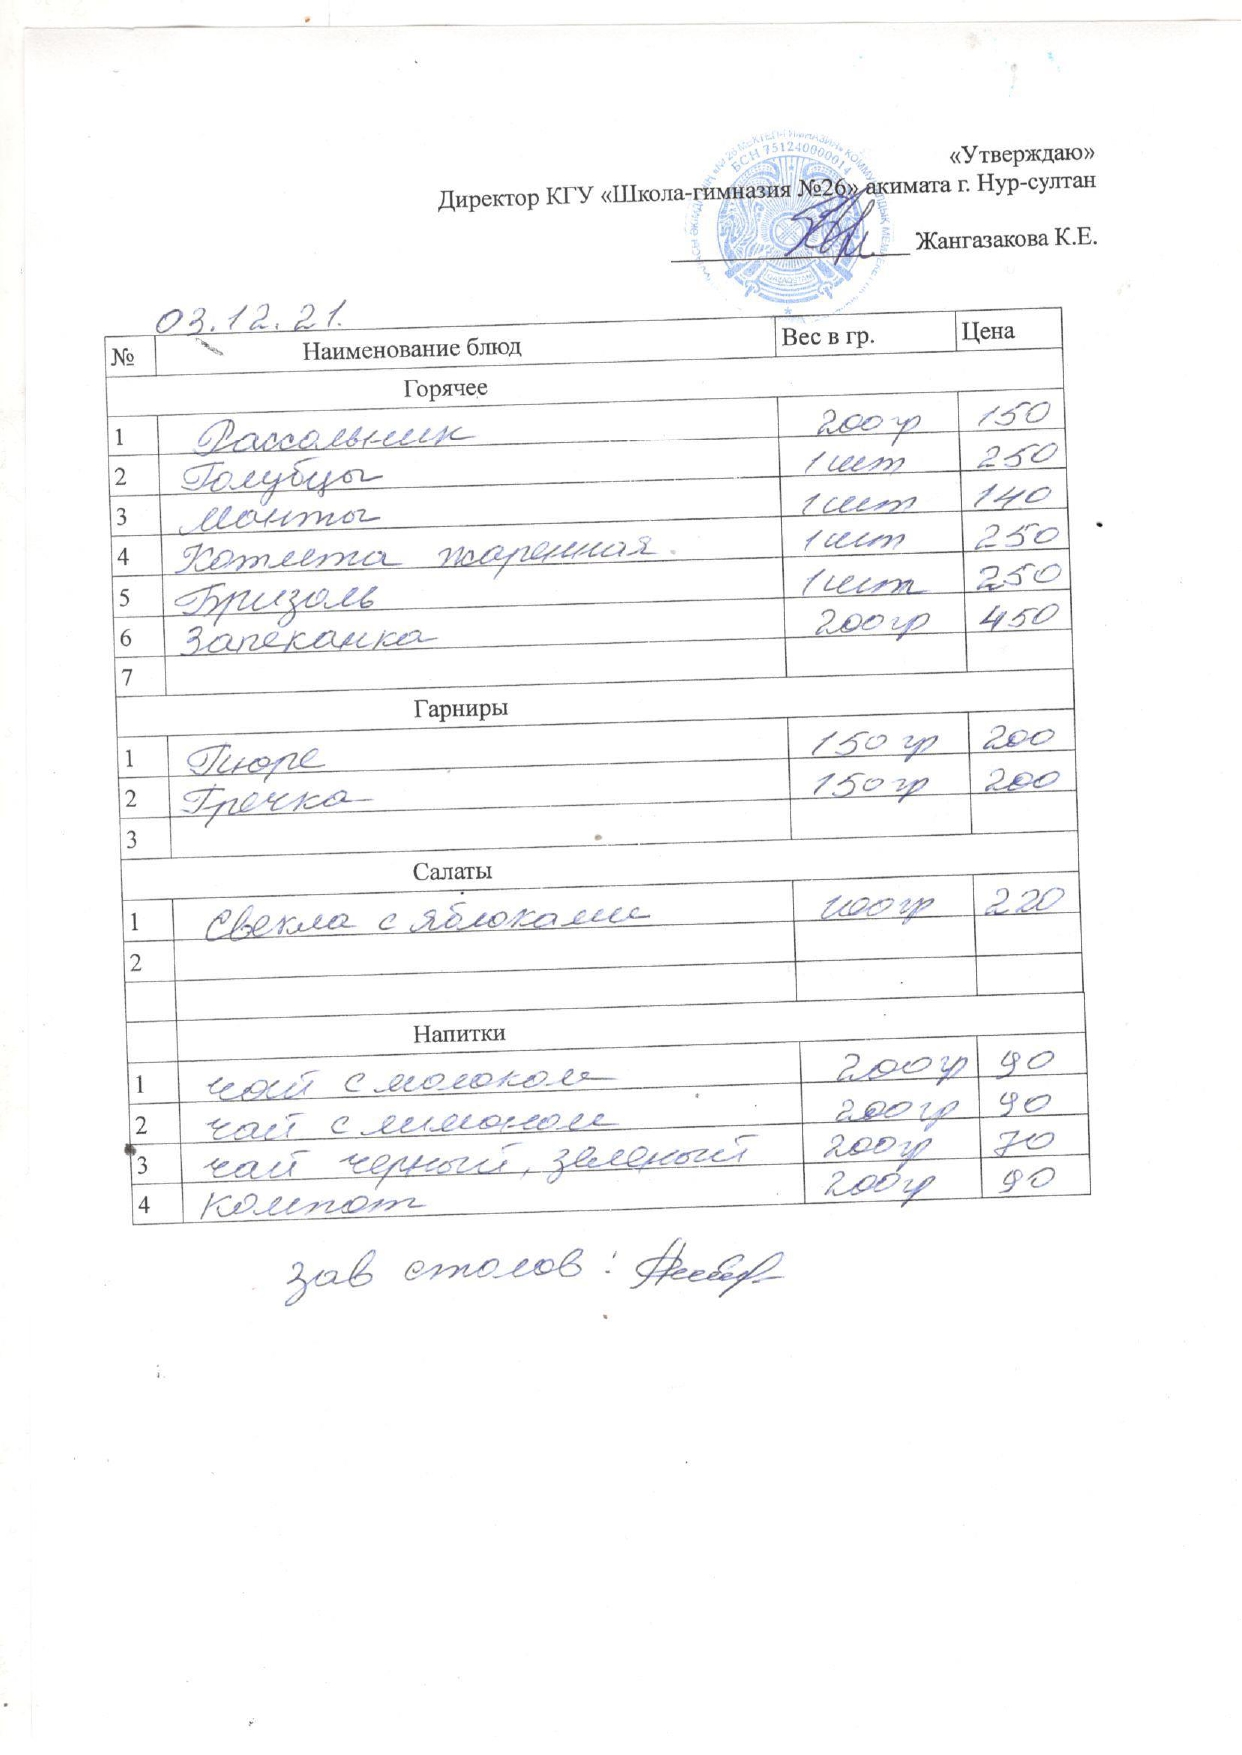 «Утверждаю»
Директор КГУ «Школа-гимназия №26» акимата г. Нур-султан
Жангазакова К.Е.
БСН 751240000014
03.12.21.
№ Наименование блюд Вес в гр. Цена
Горячее
1 Рассольник 200гр 150
2 Голубцы 1 шт 250
3 Манты 1 шт 140
4 Котлета жаренная. 1 шт 250
5 Бризоль 1 шт 250
6 Запеканка 200гр 450
7
Гарниры
1 Пюре 150 гр 200
2 Гречка 150 гр 200
3
Салаты
1 Свекла с яблоками 100гр 220
2
Напитки
1 чай с молоком 200гр 90
2 чай с лимоном 200гр 90
3 чай черный, зеленый 200гр 70
4 Компот 200гр 90
зав столов: